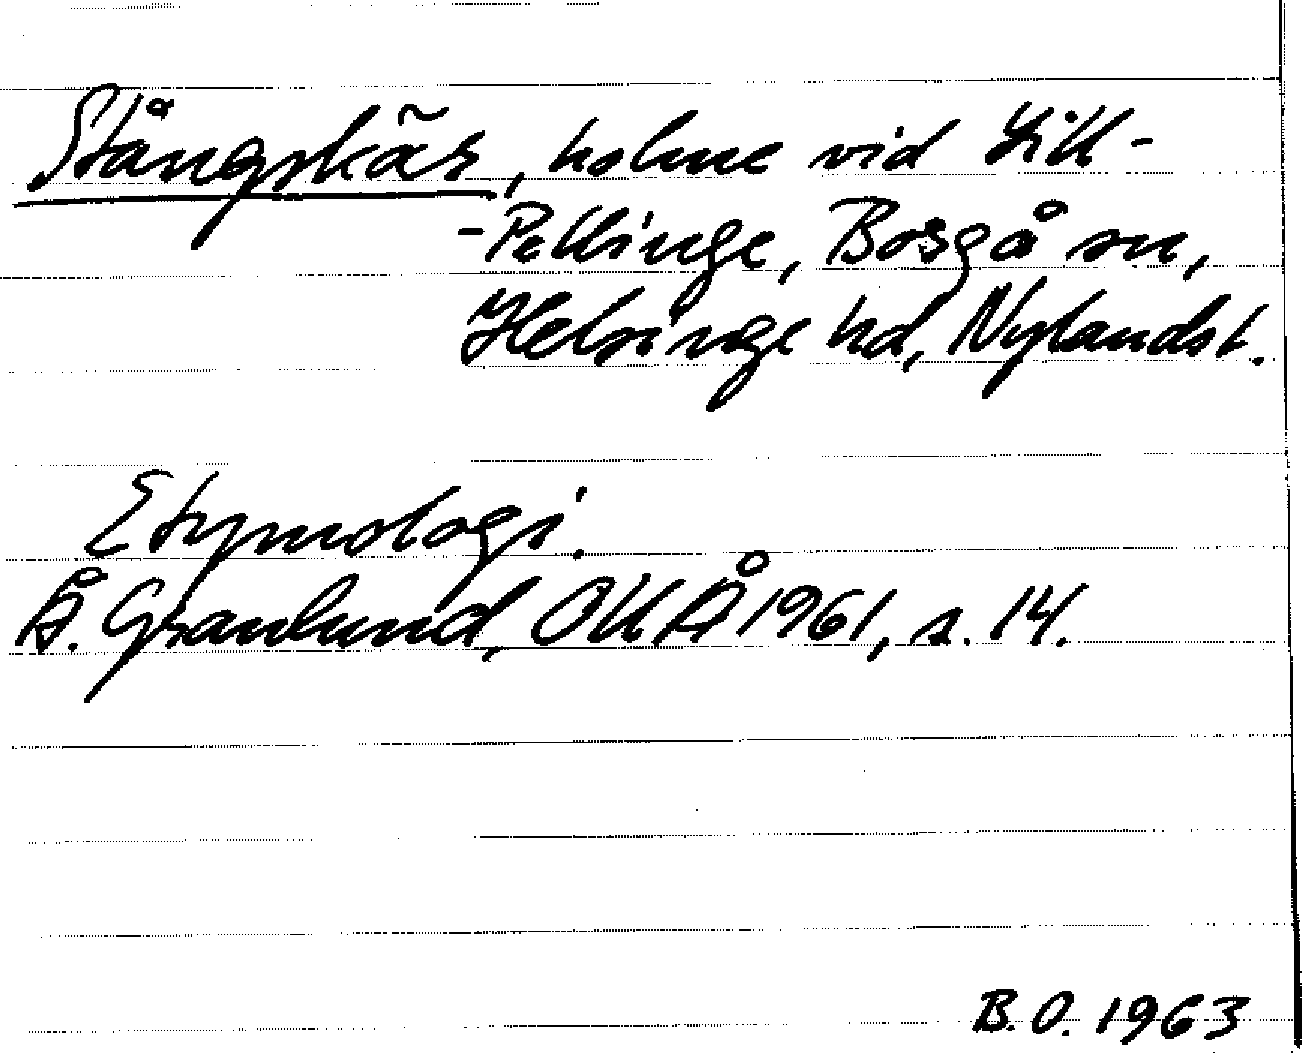 Stångskär, holme vid Lill-
-Pellinge, Borgå sn,
Helsinge hd, Nylands l.
Etymologi.
Å. Granlund, OUÅ 1961, s. 14.
B.O. 1963